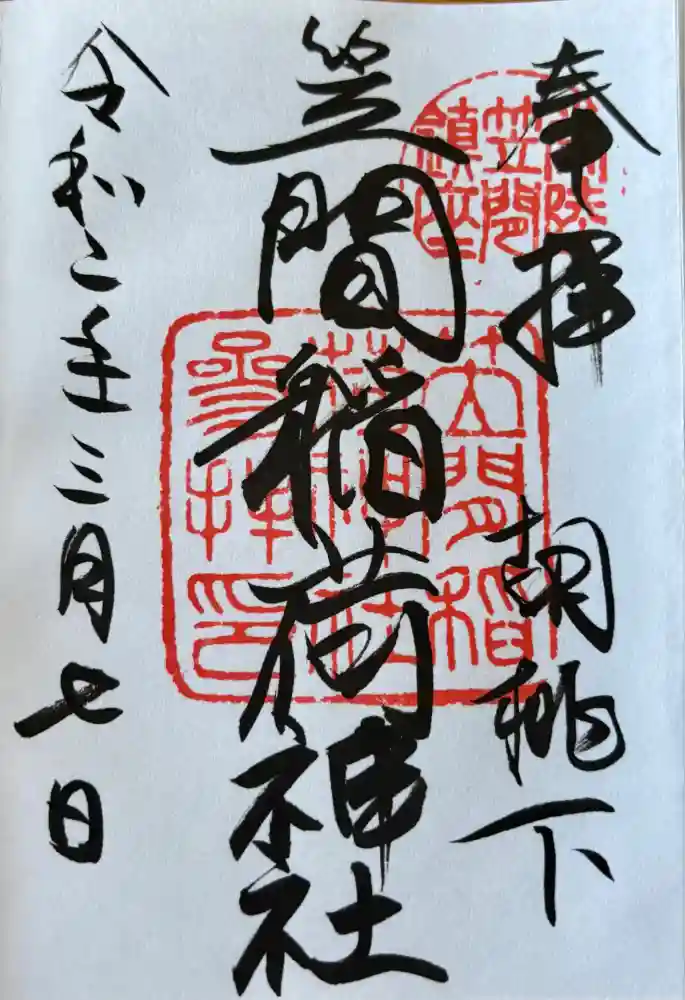 奉拝
胡桃下
笠間稲荷神社
令和二年三月七日
常陸
笠間
鎮座
笠間稲
荷神社
参拝印